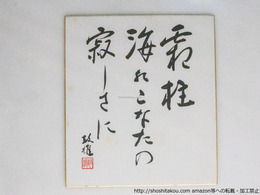 霜柱
海のこなたの
寂しさに
https://shoshitakou.com amazon等への転載・加工禁止